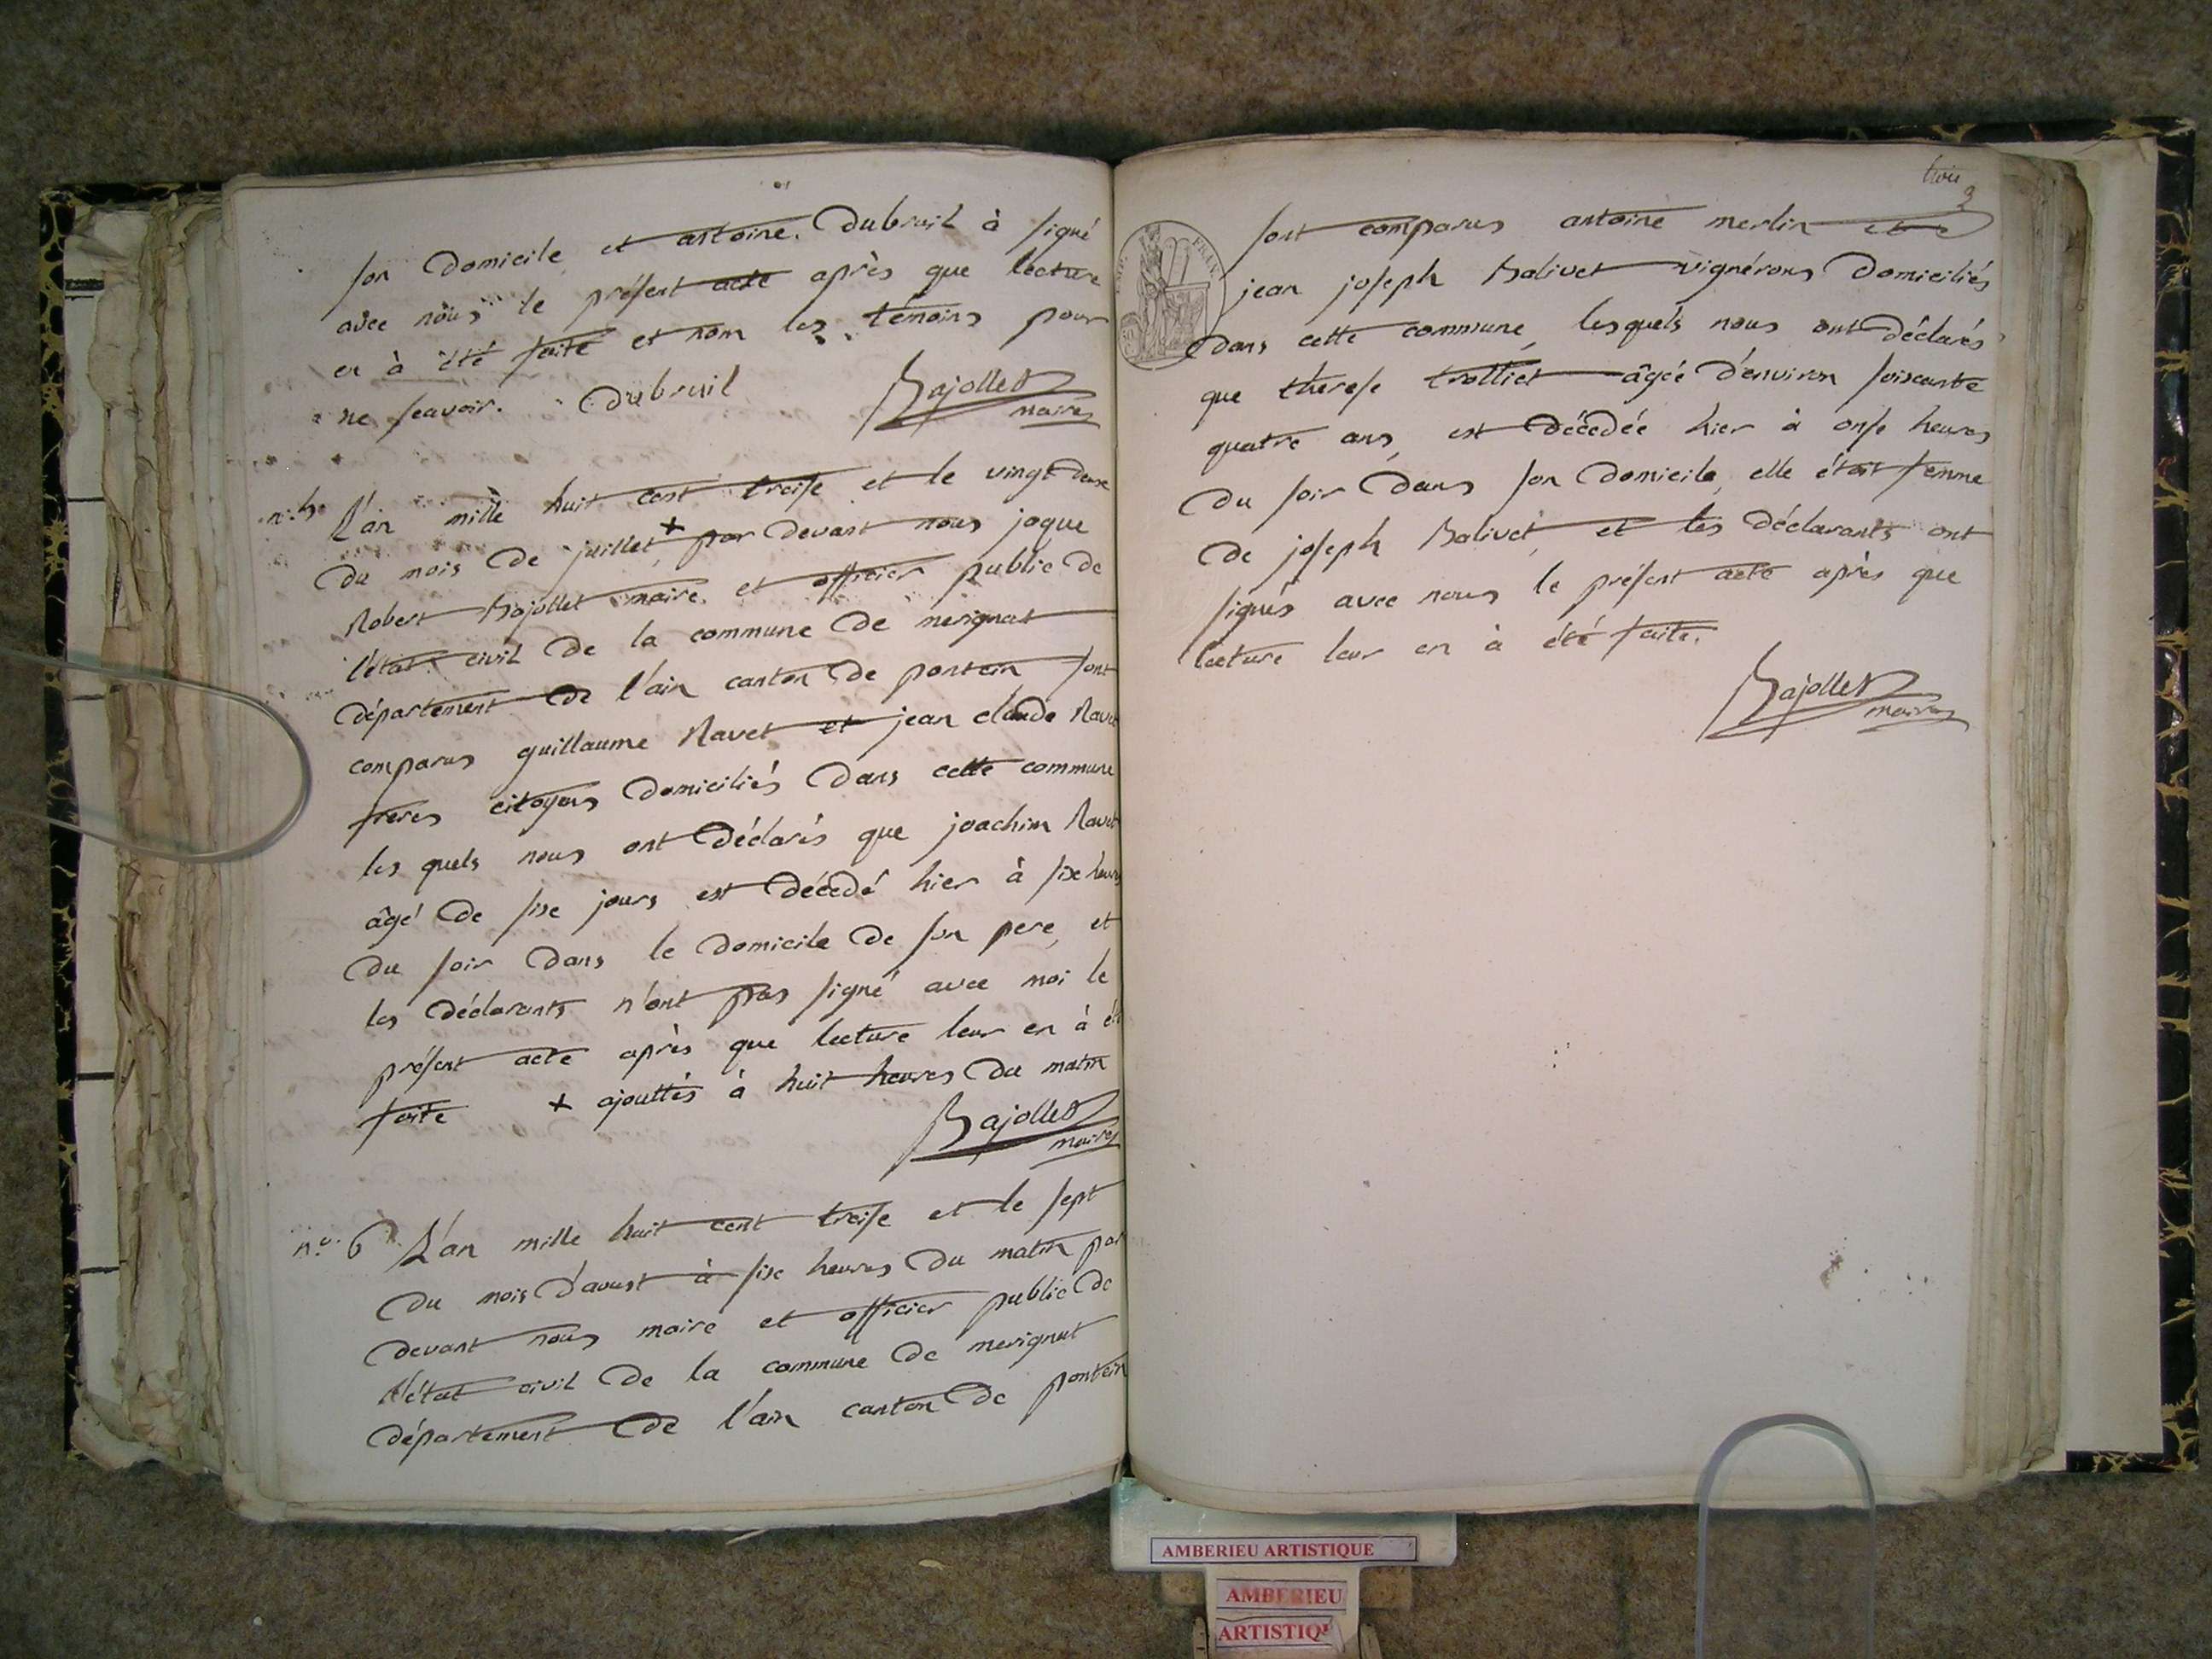 son domicile et antoine Dubreuil à signé
avec nous le présent acte après que lecture
en à été faite et nom les témoins pour
ne scavoir. Dubreuil Bajollet
maire
n.° 5 L'an mille huit cent treise et le vingt deux
du mois de juillet + par devant nous joque
Robert Bajollet maire et officier public de
l'état civil de la commune de merignat
département de l'ain canton de poncin sont
comparus guillaume Ravet et jean claude Ravet
freres citoyens domiciliés dans cette commune
les quels nous ont déclarés que joachim Ravet
âgé de sixe jours est décédé hier à sixe heures
du soir dans le domicile de son pere, et
les déclarants n'ont pas signé avec moi le
présent acte après que lecture leur en à été
faite + ajouttés à huit heures du matin
Bajollet
maire
n.° 6 L'an mille huit cent treise et le sept
du mois d'avust à sixe heures du matin par
devant nous maire et officier public de
l'état civil de la commune de merignat
département de l'ain canton de poncin
trois
3
sont comparus antoine merlin et
jean joseph Balivet vignérons domiciliés
dans cette commune, lesquels nous ont déclarés
que therese trolliet âgée d'environ soiscante
quatre ans, est décédée hier à onse heures
du soir dans son domicile, elle étoit femme
de joseph Balivet, et les déclarants ont
signés avec nous le présent acte après que
lecture leur en à été faite.
Bajollet
maire
AMBERIEU ARTISTIQUE
AMBERIEU
ARTISTIQ